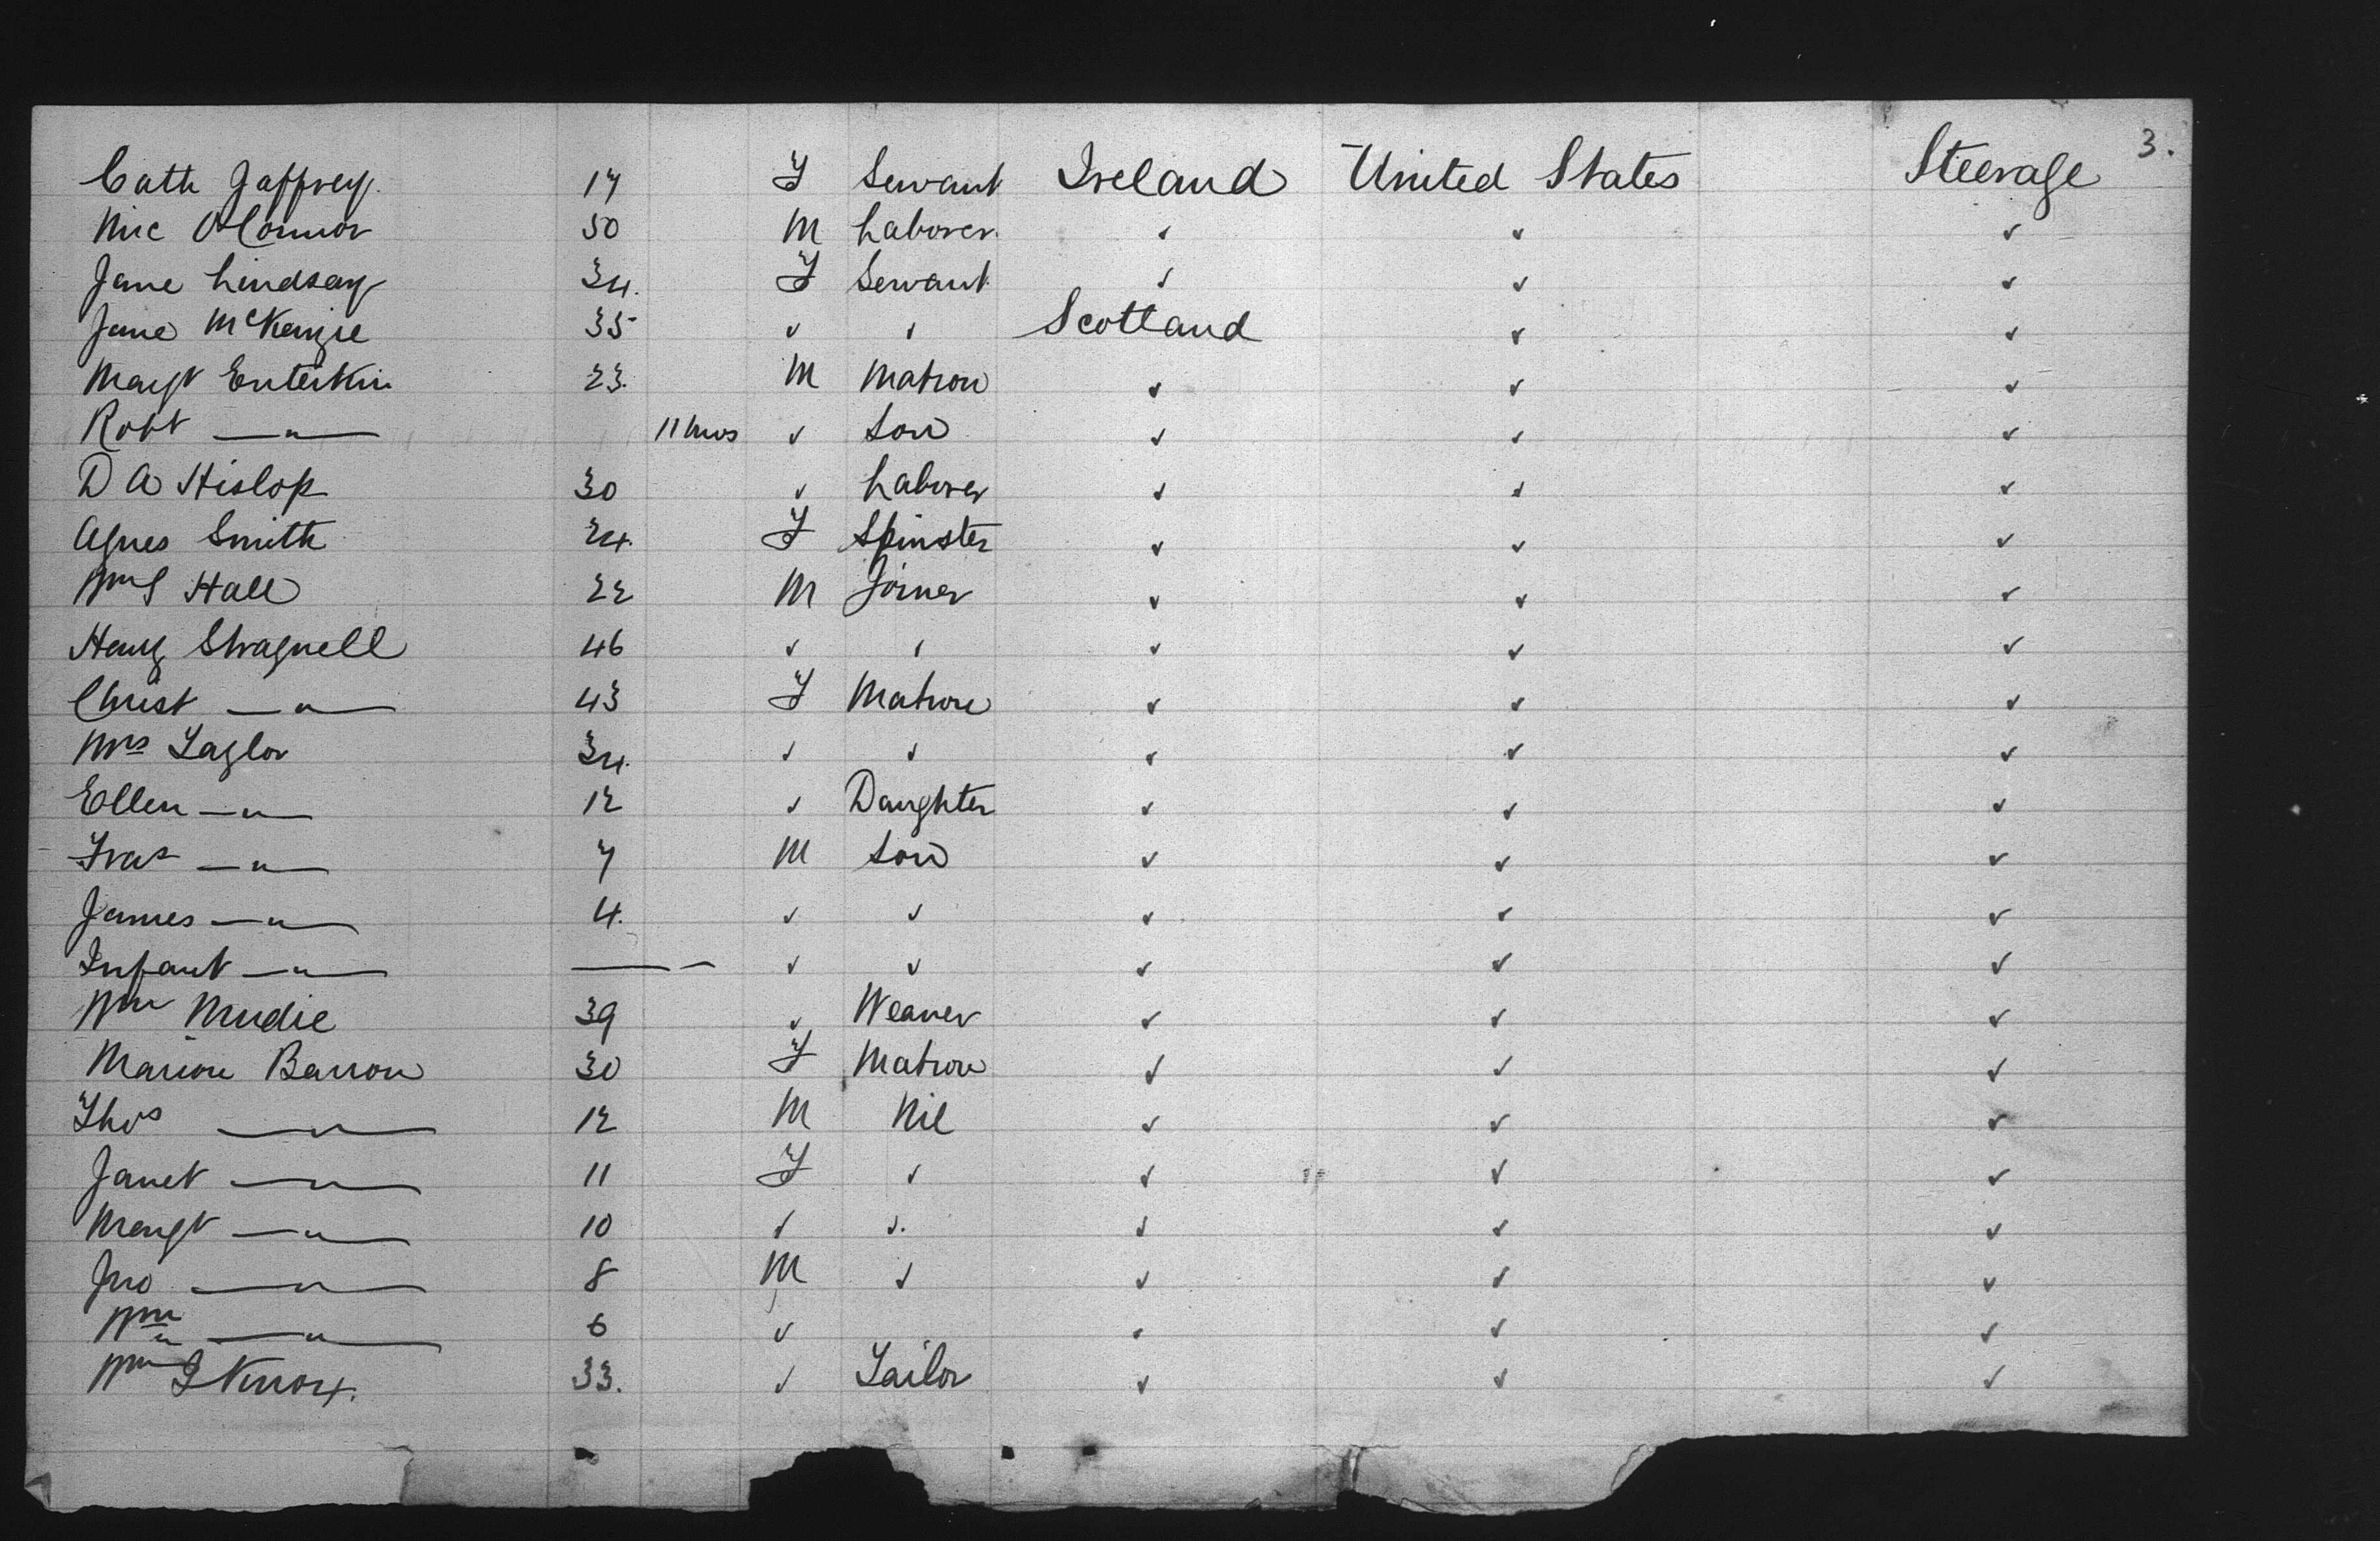 3.
Cath Jaffrey 17 F Servant Ireland United States Steerage
Mic O'Connor 50 M Laborer ✓ ✓ ✓
Jane Lindsay 34. F Servant ✓ ✓ ✓
Jane McKenzie 35 ✓ ✓ Scotland ✓ ✓
Margt Enterkin 23. M Matron ✓ ✓ ✓
Robt —"— 11 mos ✓ Son ✓ ✓ ✓
D A Hislop 30 ✓ Laborer ✓ ✓ ✓
Agnes Smith 24. F Spinster ✓ ✓ ✓
Wm S Hall 22 M Joiner ✓ ✓ ✓
Henry Stragnell 46 ✓ ✓ ✓ ✓ ✓
Christ —"— 43 F Matron ✓ ✓ ✓
Mrs Taylor 34. ✓ ✓ ✓ ✓ ✓
Ellen —"— 12 ✓ Daughter ✓ ✓ ✓
Fras —"— 7 M Son ✓ ✓ ✓
James —"— 4. ✓ ✓ ✓ ✓ ✓
Infant —"— — ✓ ✓ ✓ ✓ ✓
Wm Mudie 39 ✓ Weaver ✓ ✓ ✓
Marion Barron 30 F Matron ✓ ✓ ✓
Thos —"— 12 M Nil ✓ ✓ ✓
Janet —"— 11 F ✓ ✓ ✓ ✓
Margt —"— 10 ✓ ✓. ✓ ✓ ✓
Jno —"— 8 M ✓ ✓ ✓ ✓
Wm —"— 6 ✓ ✓ ✓ ✓
Wm Knox. 33. ✓ Tailor ✓ ✓ ✓